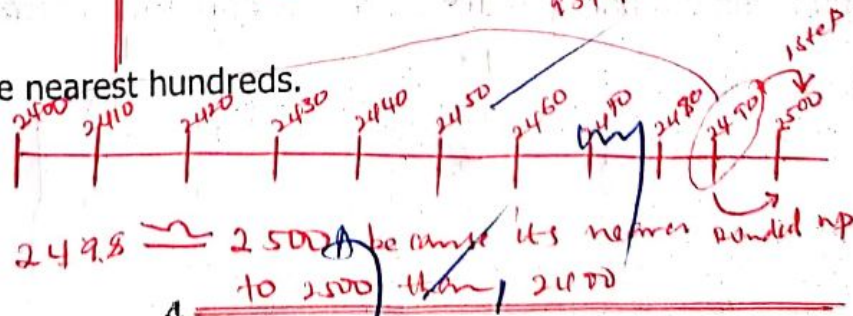 e nearest hundreds.
2400 2410 2420 2430 2440 2450 2460 2480 2490 2500
1 step
2498 ≃ 2500 because its nearer rounded up
to 2500 than 2400